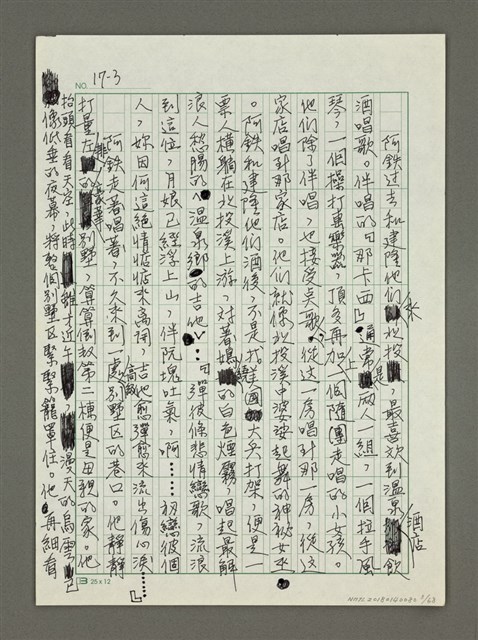 NO. 17-3
阿鉄过去和建隆他們來北投，最喜欢到温泉酒店飲
酒唱歌。伴唱的「那卡西」通常是兩人一組，一個拉手風
琴，一個操打击樂器，頂多再加上一個隨團走唱的小女孩。
他們除了伴唱，也接受点歌。從这一房唱到那一房，從这
家店唱到那家店。他們就像北投溪中婆娑起舞的神秘女巫
。阿鉄和建隆他們酒後，不是找美國大兵打架，便是一
票人橫躺在北投溪上游，对著嫋嫋的白色煙霧，唱起最解
浪人愁腸的〈温泉鄉的吉他〉…。「彈彼條悲情戀歌，流浪
到這位，月娘已經浮上山，伴阮塊吐氣，啊……初戀彼個
人，妳因何這絕情惦惦來离開，吉他愈彈愈來流出傷心淚……」
阿鉄走著唱著，不久來到一處高級別墅区的巷口。他靜靜
打量左邊的豪華別墅，算算倒数第二棟便是母親的家。他
抬頭看看天经，此時雖才近午，漫天的烏雲已
像低垂的夜幕，將整個別墅区緊緊籠罩住。他再細看
25x12
NMTL20180120080 3/68